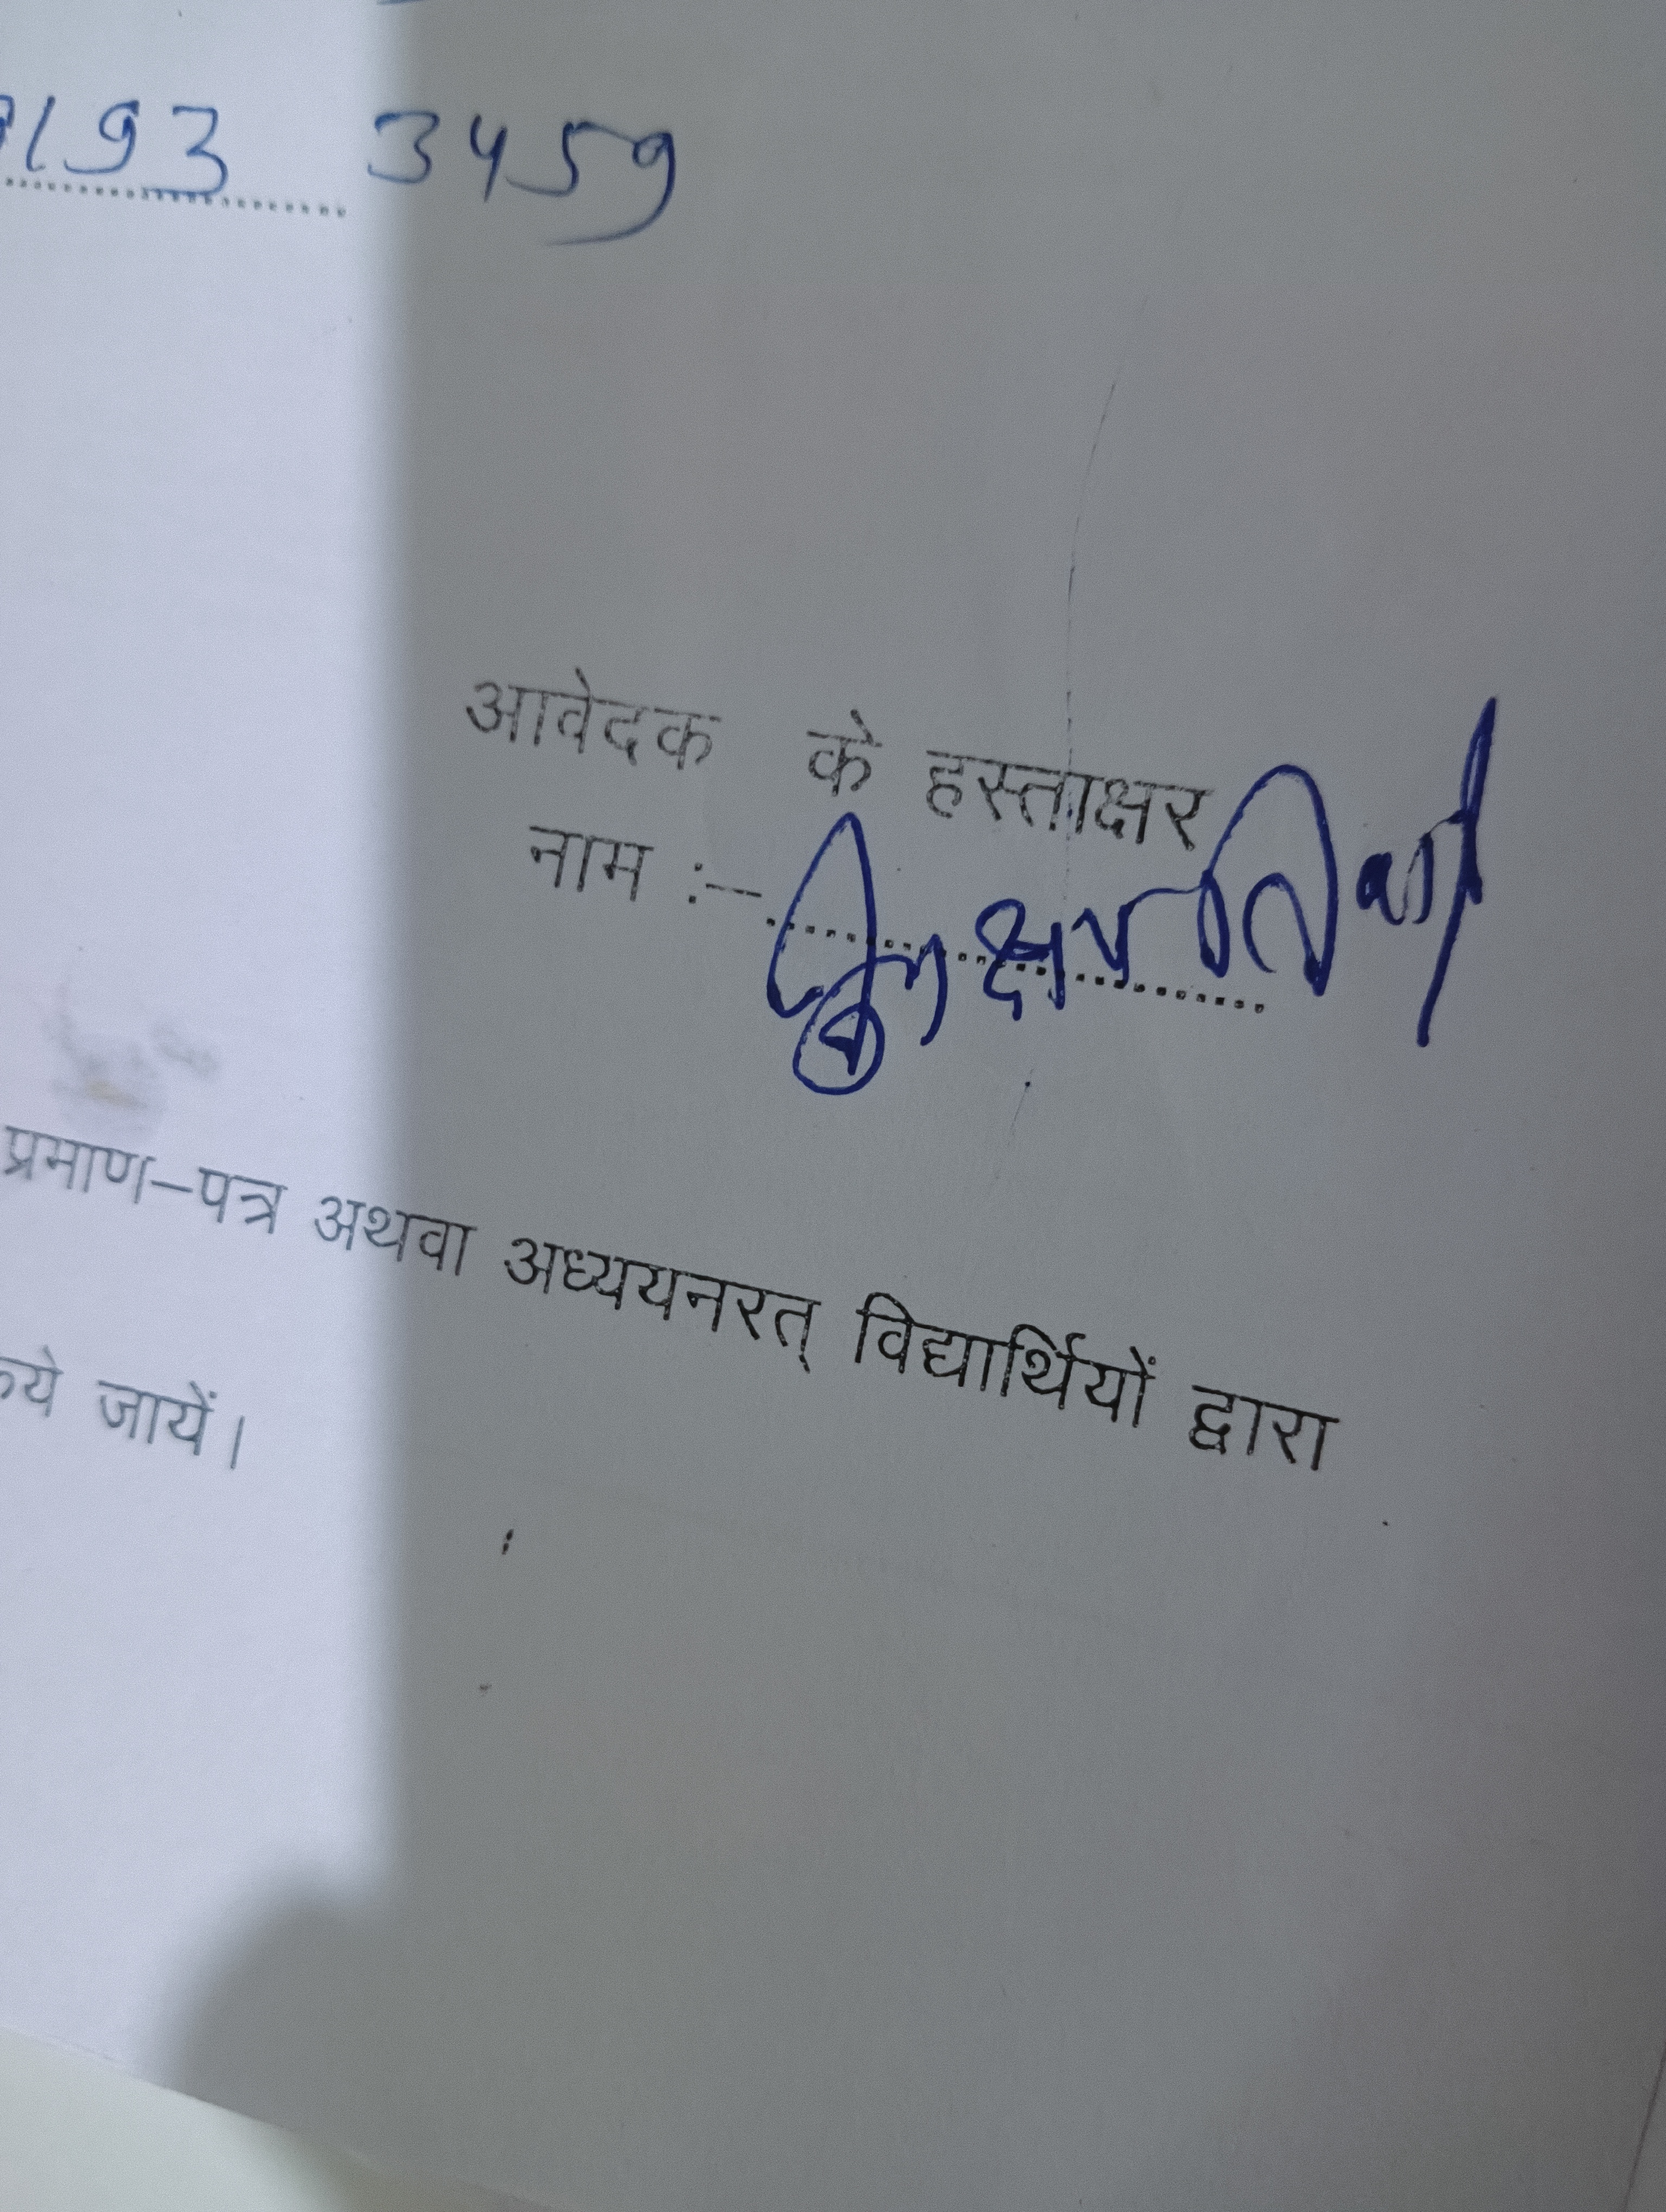 193 3459
आवेदक के हस्ताक्षर
नाम :-
प्रमाण-पत्र अथवा अध्ययनरत् विद्यार्थियों द्वारा
जायें।